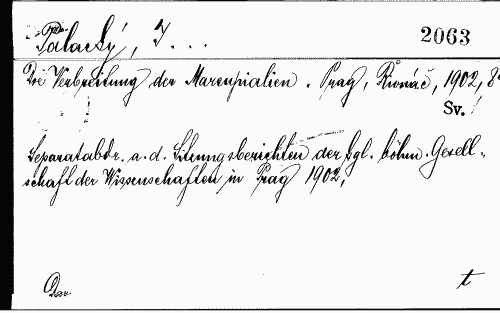 Palacký, J...
2063
Die Verbreitung der Marsupialien. Prag, Řivnáč, 1902, 8°
Sv. 1
Separatabdr. a. d. Sitzungsberichten der kgl. böhm. Gesell-
schaft der Wissenschaften in Prag 1902.
t